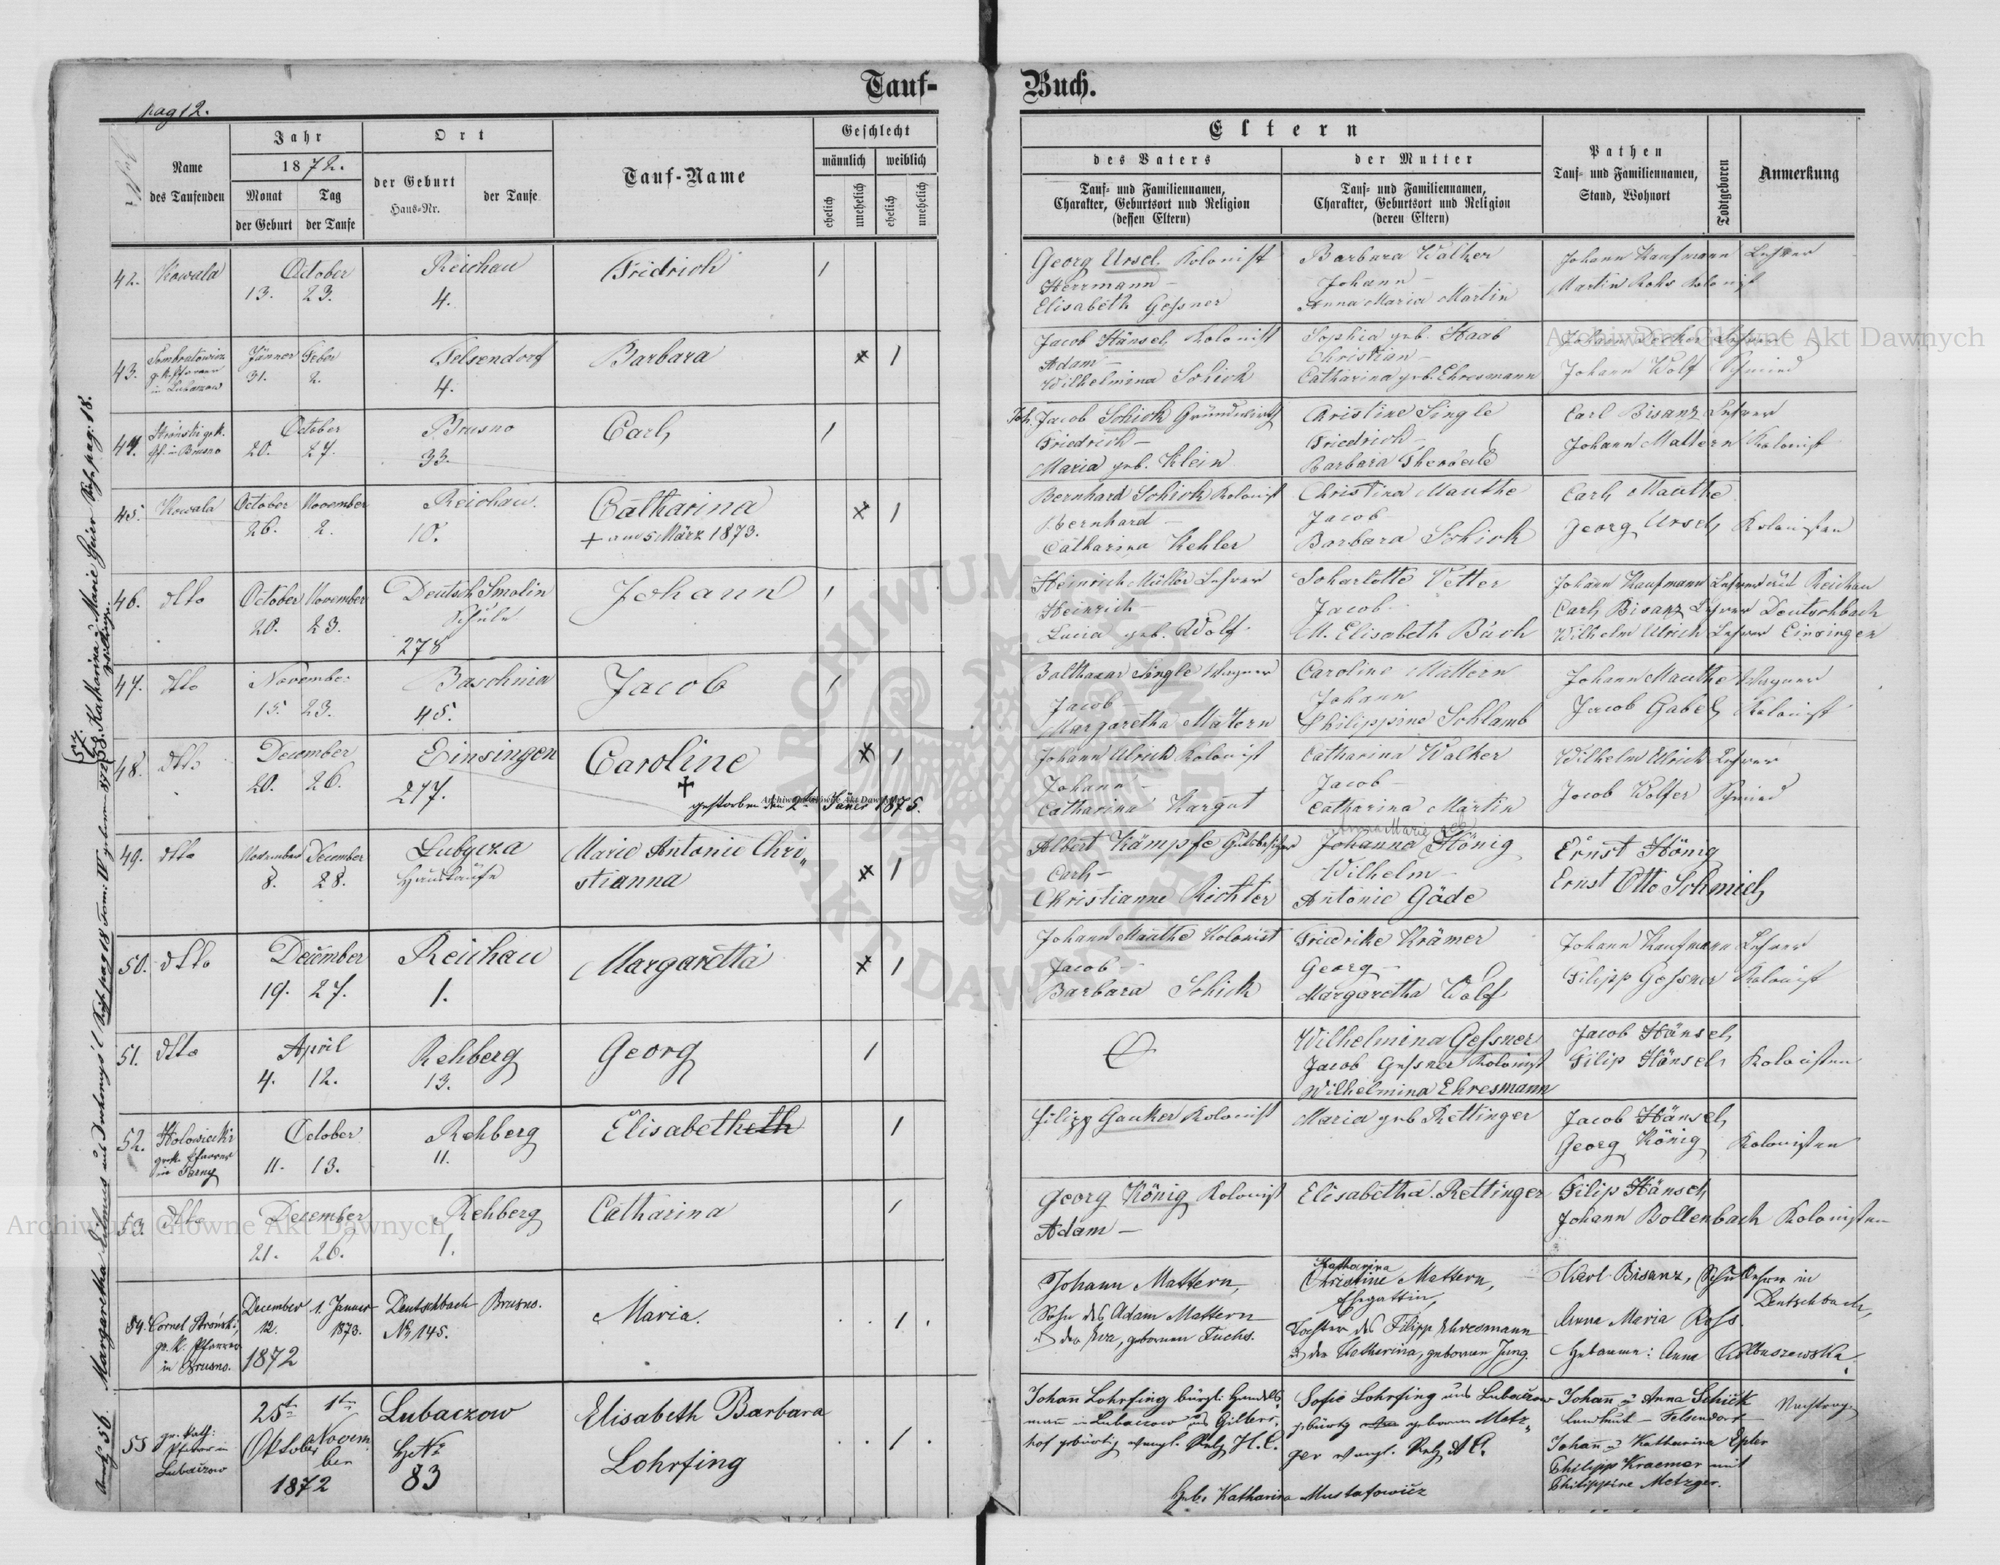 Tauf-
Buch.
pag 12.
Name
des Taufenden
Jahr
1872.
Monat
der Geburt
Tag
der Taufe
Ort
der Geburt
Haus-Nr.
der Taufe
Tauf-Name
Geschlecht
männlich
weiblich
ehelich
unehelich
ehelich
unehelich
Eltern
des Vaters
Tauf- und Familiennamen,
Charakter, Geburtsort und Religion
(dessen Eltern)
der Mutter
Tauf- und Familiennamen,
Charakter, Geburtsort und Religion
(deren Eltern)
Pathen
Tauf- und Familiennamen,
Stand, Wohnort
Todtgeboren
Anmerkung
42. Kowala October Reichau Fridrich 1
13. 23. 4.
Georg Ursel Kolonist Barbara Walker Johann Kaufmann Lehrer
Herrmann – Johann – Martin Rohs Kolonist
Elisabeth Gessner Anna Maria Martin
43. Jänner Feber Felsendorf Barbara 1
31. 2. 4.
in Lubaczow
Jacob Hänsel Kolonist Sophia geb. Haab Johann Decker Lehrer
Adam – Christian – Johann Wolf Schmied
Wilhelmina Schick Catharina geb. Ehresmann
44. October Brusno Carl 1
20. 27. 33.
Joh. Jacob Schick Grundwirth Christine Single Carl Bisanz Lehrer
Friedrich – Friedrich – Johann Mattern Kolonist
Maria geb. Klein Barbara
45. Kowala October November Reichau. Catharina 1
26. 2. 10. + am 5 März 1873.
Bernhard Schick Kolonist Christina Mauthe Carl Mauthe
Bernhard – Jacob Georg Ursel Kolonisten
Catharina Kehler Barbara Schick
46. dtto October November Deutsch Smolin Johann 1
20. 23. Schule
278
Heinrich Müller Lehrer Scharlotte Vetter Johann Kaufmann Lehrer aus Reichau
Heinrich – Jacob – Carl Bisanz Lehrer Deutschbach
Lucia geb. Wolf. M. Elisabeth Buch Wilhelm Ulrich Lehrer Einsingen
47. dtto November Baschnia Jacob 1
15. 23. 45.
Balthasar Single Wagner Caroline Mattern Johann Mauthe Wagner
Jacob Johann Jacob Gabel Kolonist
Margaretha Mattern Philippine Schlamb
48. dtto December Einsingen Caroline 1
20. 26. 217. gestorben den 2ten Jäner 1875.
Johann Ulrich Kolonist Catharina Walker Wilhelm Ulrich Lehrer
Johann – Jacob – Jacob Wolfer Schmied
Catharina Hargut Catharina Martin
49. dtto November December Lubycza Marie Antonie Chri-
8. 28. Haustaufe stianna 1
Albert Kämpfe Gutsbesitzer Johanna König Ernst König
Carl – Wilhelm – Ernst Otto Schmid
Christianne Richter Antonie Gäde
50. dtto December Reichau Margaretta 1
19. 27. 1.
Johann Mauthe Kolonist Friedrike Krämer Johann Kaufmann Lehrer
Jacob – Georg – Filipp Gessner Kolonist
Barbara Schick Margaretha Wolf
51. dtto April Rehberg Georg 1
4. 12. 13.
Wilhelmina Gessner Jacob Hänsel
Jacob Gessner Kolonist Filip Hänsel Kolonisten
Wilhelmina Ehresmann
52. October Rehberg Elisabetheth 1
11. 13. 11.
Filipp Gauker Kolonist Maria geb Rettinger Jacob Hänsel
Georg König Kolonisten
53. dtto December Rehberg Catharina 1
21. 26. 1.
Georg König Kolonist Elisabetha Rettinger Filip Hänsel
Adam – Johann Bollenbach Kolonisten
54. Cornel Stroński, December 1. Januar Deutschbach Brusno. Maria. 1.
gr. k. Pfarrer 12. 1873. Nr 145.
in Brusno. 1872
Johann Mattern, Katharina Christine Mattern, Karl Bisanz, Schullehrer in
Ehegattin, Deutschbach,
Sohn des Adam Mattern Tochter des Filipp Ehresmann Anna Maria Ross
u. der Eva, gebornen Fuchs. u. der Katharina, gebornen Jung. Hebamme: Anna Kolbuszowska.
55 gr. kath: 25te 1ten Lubaczow Elisabeth Barbara
Pfarrer in Oktober Novem- Hs No Lohrfing 1.
Lubaczow ber 83
1872
Johann Lohrfing bürgl: Handels- Sofie Lohrfing aus Lubaczow Johann u Anna Schick
mann in Lubaczow aus Gillers- gebürtig geborne Metz- Landwirt – Felsendorf
hof gebürtig evangl. Relg H. C. ger evangl. Relg A C. Johann u Katharina Epler
Philipp Kraemer mit
Philippine Metzger.
Nachtrag
Hebe Katharina Mustafowicz